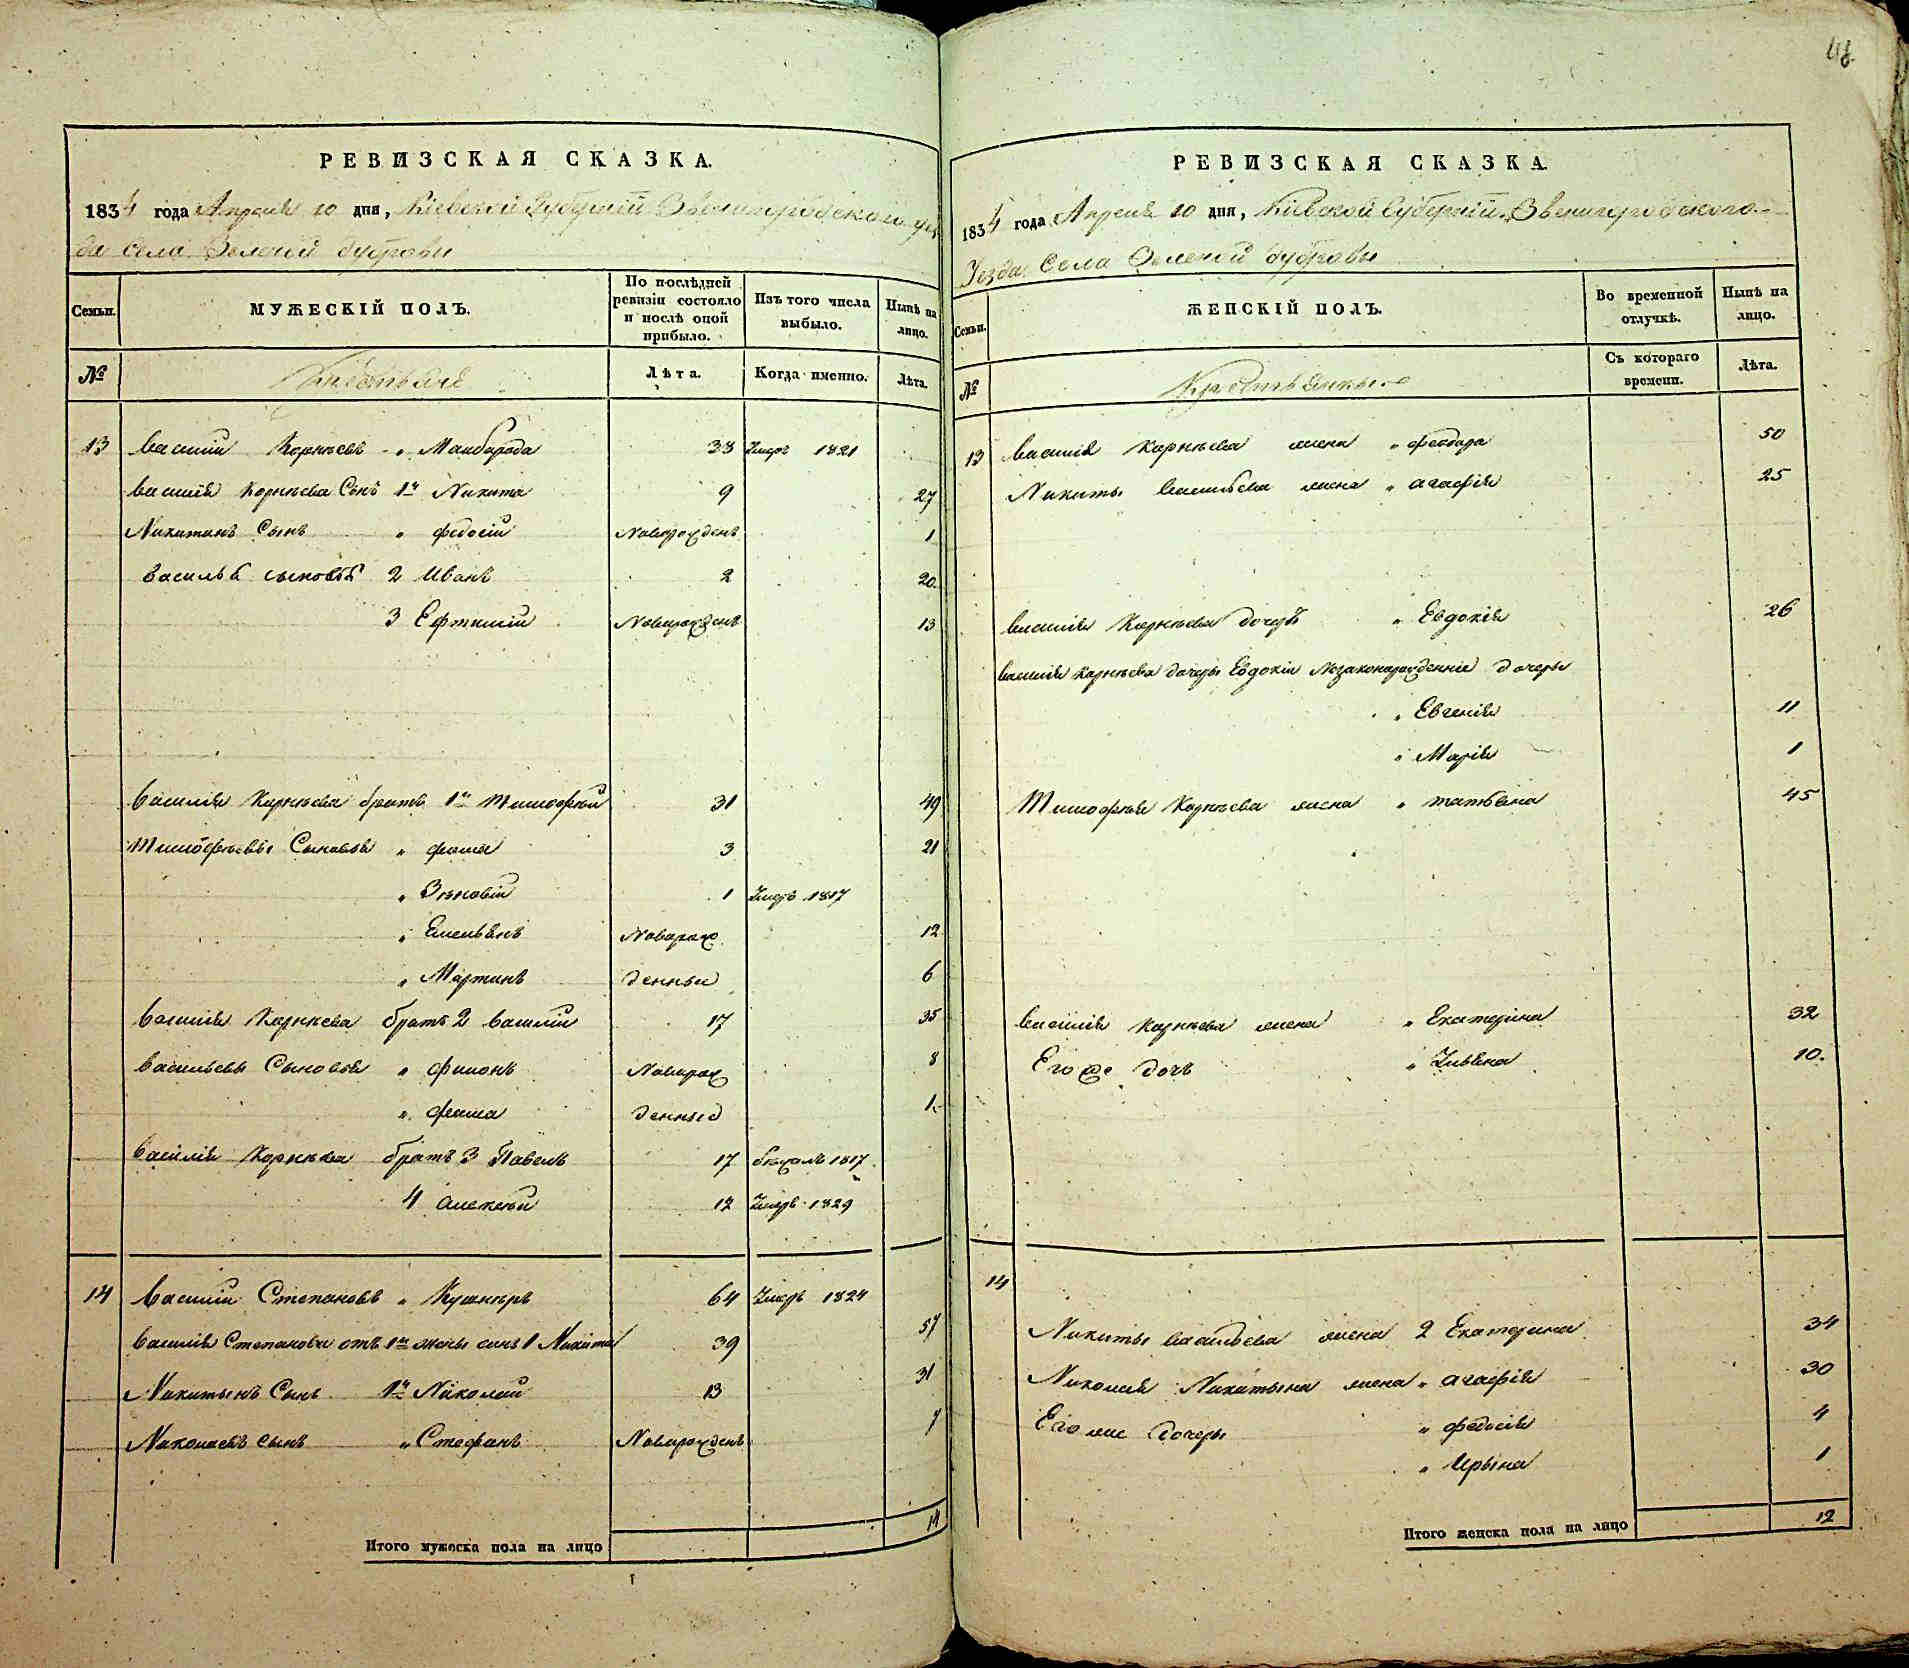 РЕВИЗСКАЯ СКАЗКА.
1834 года Апреля 10 дня, Кіевской Губерніи Звенигородского уѣз
да села Зеленой дубровы
Семьи.
МУЖЕСКІЙ ПОЛЪ.
По послѣдней ревизіи состояло и послѣ оной прибыло.
Изъ того числа выбыло.
Нынѣ на лицо.
№
Крестьяне
Лѣта.
Когда именно.
Лѣта.
13 Василій Корнѣевъ „ Майборода 33 Умеръ 1821
Василія Корнѣева Сынъ 1й Никита 9 27
Никитинъ Сынъ „ федосій Новорожденъ 1
Василья сыновья 2 Иванъ 2 20
3 Ефтимій Новорожденъ 13
Василія Корнѣева братъ 1й Тимофѣй 31 49
Тимофѣевы Сыновья „ фома 3 21
„ Зѣновій 1 Умеръ 1817
„ Емельянъ Новорож 12
„ Мартинъ денные 6
Василія Корнѣева братъ 2 Василій 17 35
Васильевы Сыновья „ филонъ Новорож 8
„ фома денные 1
Василія Корнѣева братъ 3 Павелъ 17 бежалъ 1817
4 Алексѣй 12 Умеръ 1829
14 Василій Степановъ „ Кушниръ 64 Умеръ 1824
Василія Степанова отъ 1й жены сынъ 1 Никита 39 57
Никитынъ Сынъ 1й Николай 13 31
Николаевъ сынъ „ Стефанъ Новорожденъ 7
Итого мужеска пола на лицо 14
РЕВИЗСКАЯ СКАЗКА.
1834 года Апреля 10 дня, Кіевской Губерніи Звенигородского
Уѣзда Села Зеленой дубровы
Семьи.
ЖЕНСКІЙ ПОЛЪ.
Во временной отлучкѣ.
Нынѣ на лицо.
№
Крестьянки
Съ котораго времени.
Лѣта.
13 Василія Корнѣева жена „ феодора 50
Никиты Васильева жена „ агафія 25
Василія Корнѣева дочерь „ Евдокія 26
Василія Корнѣева дочеры Евдокіи Незаконорожденніе дочеры
„ Евгенія 11
„ Марія 1
Тимофѣя Корнѣева жена „ татьяна 45
Василія Корнѣева жена „ Екатерина 32
Его же дочь „ Ульяна 10
14
Никиты васильева жена 2 Екатерина 34
Николая Никитына жена „ агафія 30
Его же дочеры „ федосія 4
„ Ирына 1
Итого женска пола на лицо 12